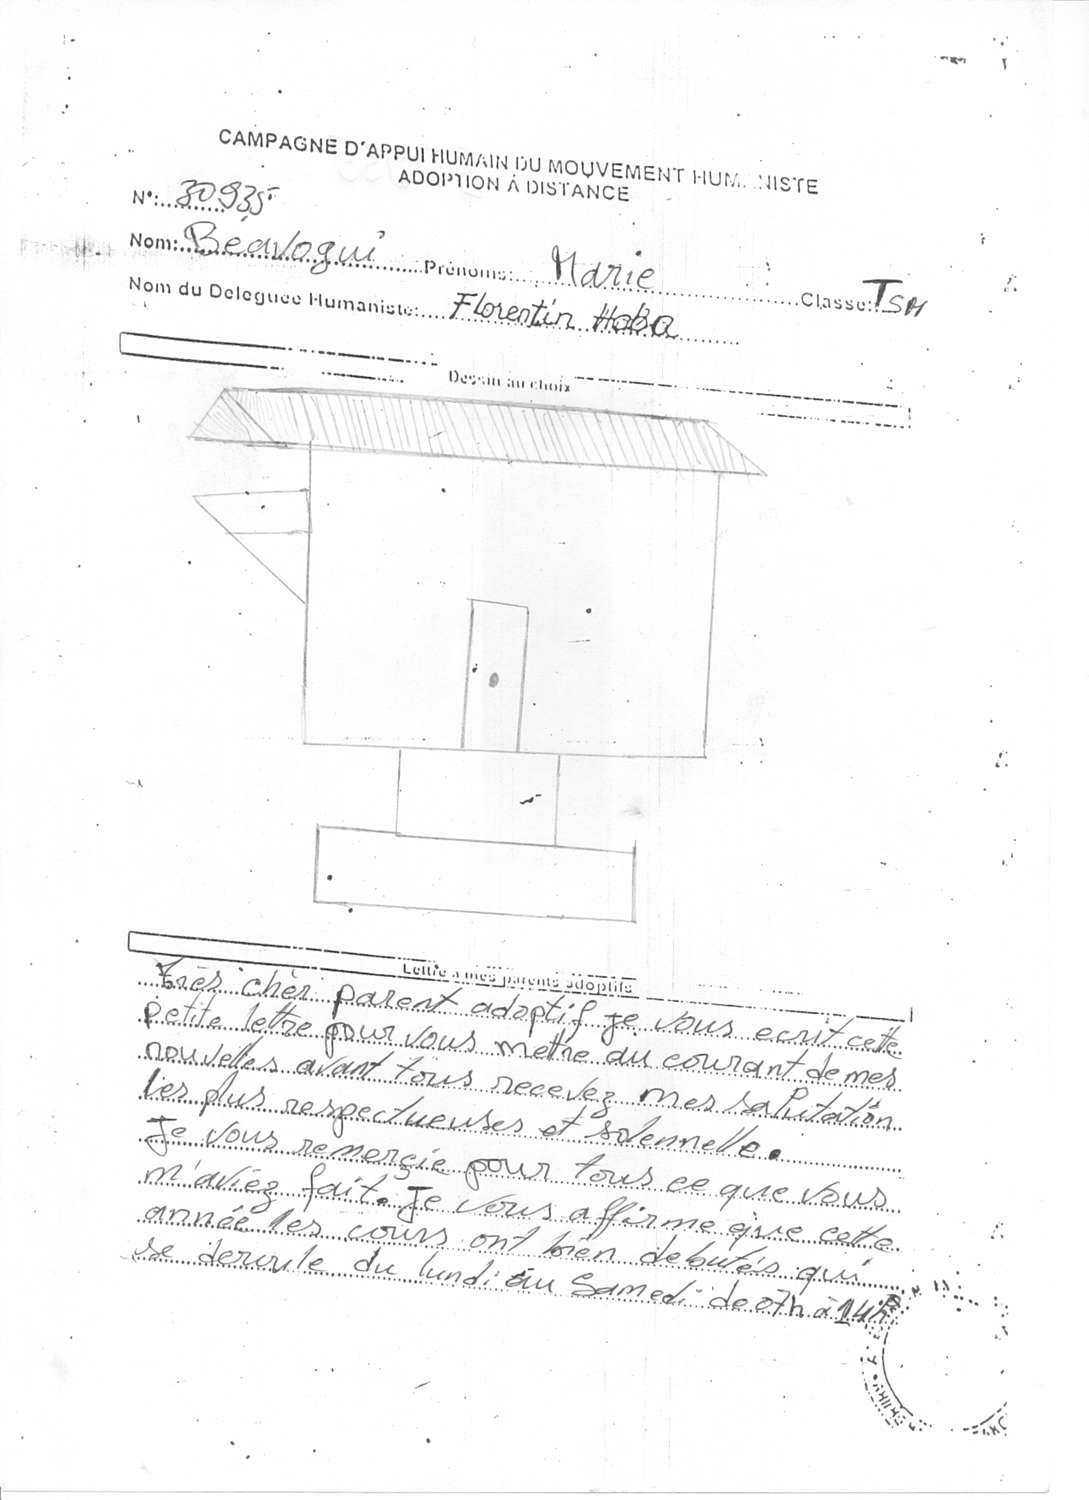 CAMPAGNE D'APPUI HUMAIN DU MOUVEMENT HUMANISTE
ADOPTION À DISTANCE
N°: 30935
Nom: Béavogui Prénoms: Marie Classe: TSM
Nom du Déléguée Humaniste: Florentin Haba
Dessin au choix
Lettre à mes parents adoptifs
très chèr parent adoptif je vous ecrit cette
petite lettre pour vous mettre au courant de mes
nouvelles avant tous recevez mes salutation
les plus respectueuses et solennelle.
Je vous remerçie pour tous ce que vous
m'aviez fait. Je vous affirme que cette
année les cours ont bien debutés qui
se deroule du lundi au Samedi de 07h à 14h